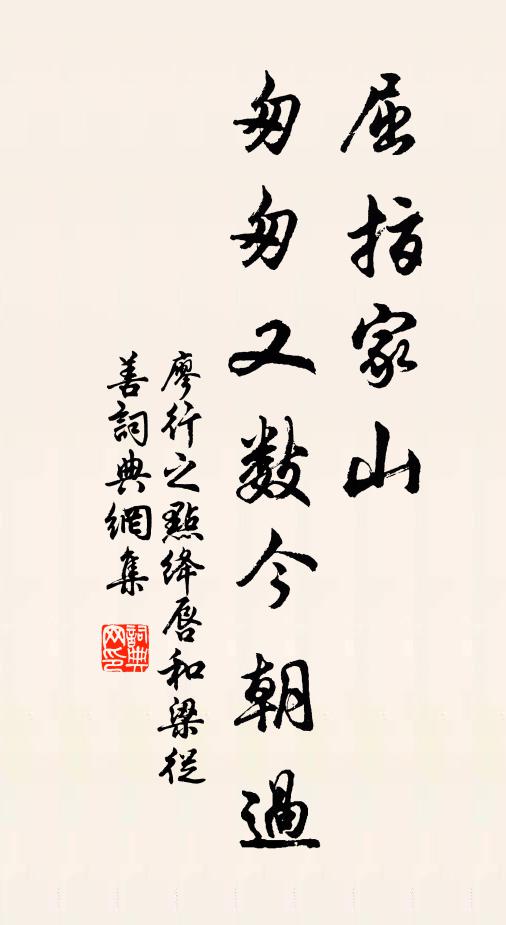 屈指家山
匆匆又數今朝過
廖行之點絳唇和梁從
善詞典網集
詞典
网印